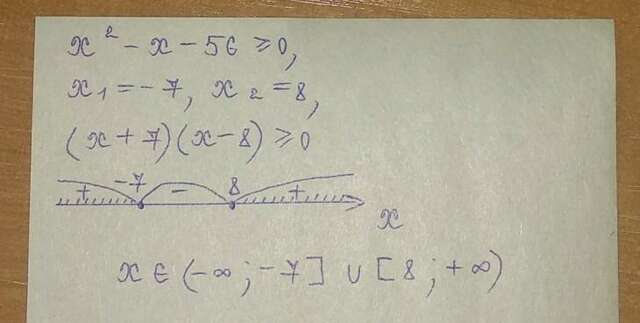 x² - x - 56 ≥ 0,
x₁ = -7, x₂ = 8,
(x + 7)(x - 8) ≥ 0
+ -7 - 8 + x
x ∈ (-∞; -7] ∪ [8; +∞)